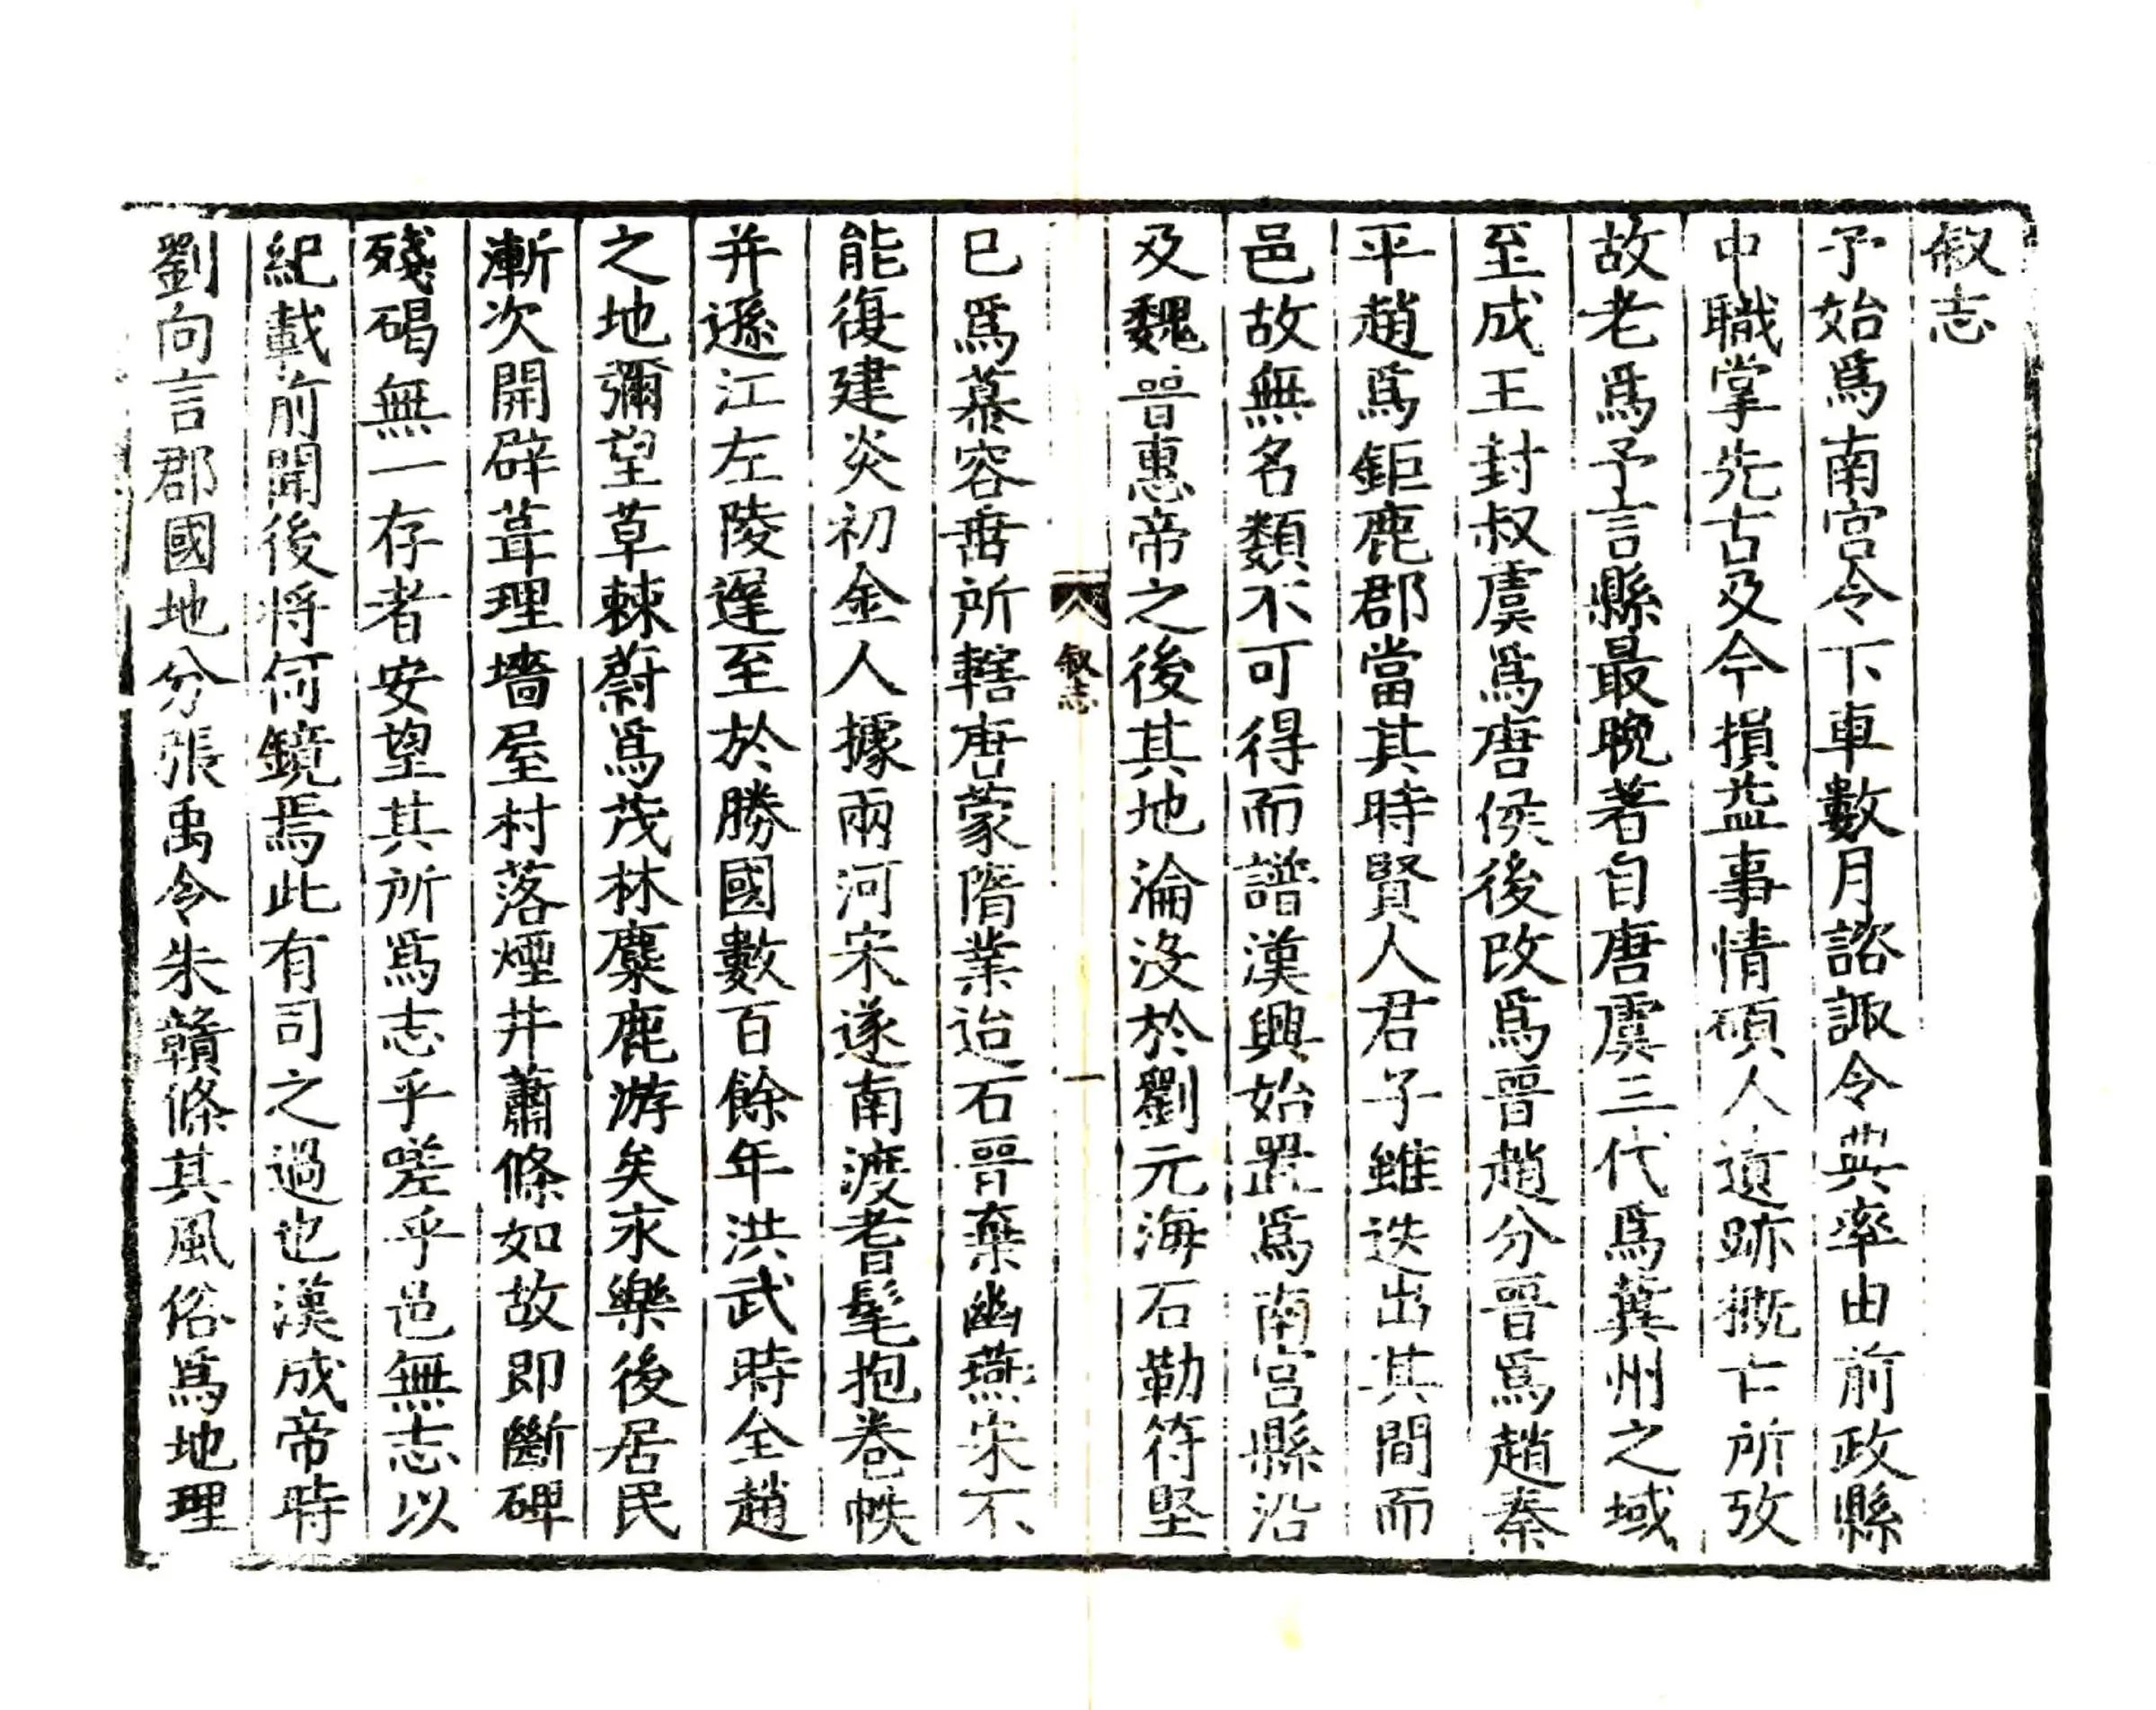 叙志
予始爲南宫令下車數月諮諏令典率由前政縣
中職掌先古及今損益事情碩人遺跡撫亡所攷
故老爲予言縣最晚著自唐虞三代爲冀州之域
至成王封叔虞爲唐侯後改爲晉趙分晉爲趙秦
平趙爲鉅鹿郡當其時賢人君子雖迭出其間而
邑故無名類不可得而譜漢興始置爲南宫縣沿
及魏晉惠帝之後其地淪沒於劉元海石勒符堅
叙志
一
已爲慕容垂所轄唐蒙隋業迨石晉棄幽燕宋不
能復建炎初金人據兩河宋遂南渡耆髦抱卷帙
并遜江左陵遲至於勝國數百餘年洪武時全趙
之地彌望草棘蔚爲茂林麋鹿游矣永樂後居民
漸次開辟葺理墻屋村落煙井蕭條如故即斷碑
殘碣無一存者安望其所爲志乎嗟乎邑無志以
紀載前聞後將何鏡焉此有司之過也漢成帝時
劉向言郡國地分張禹令朱贛條其風俗爲地理